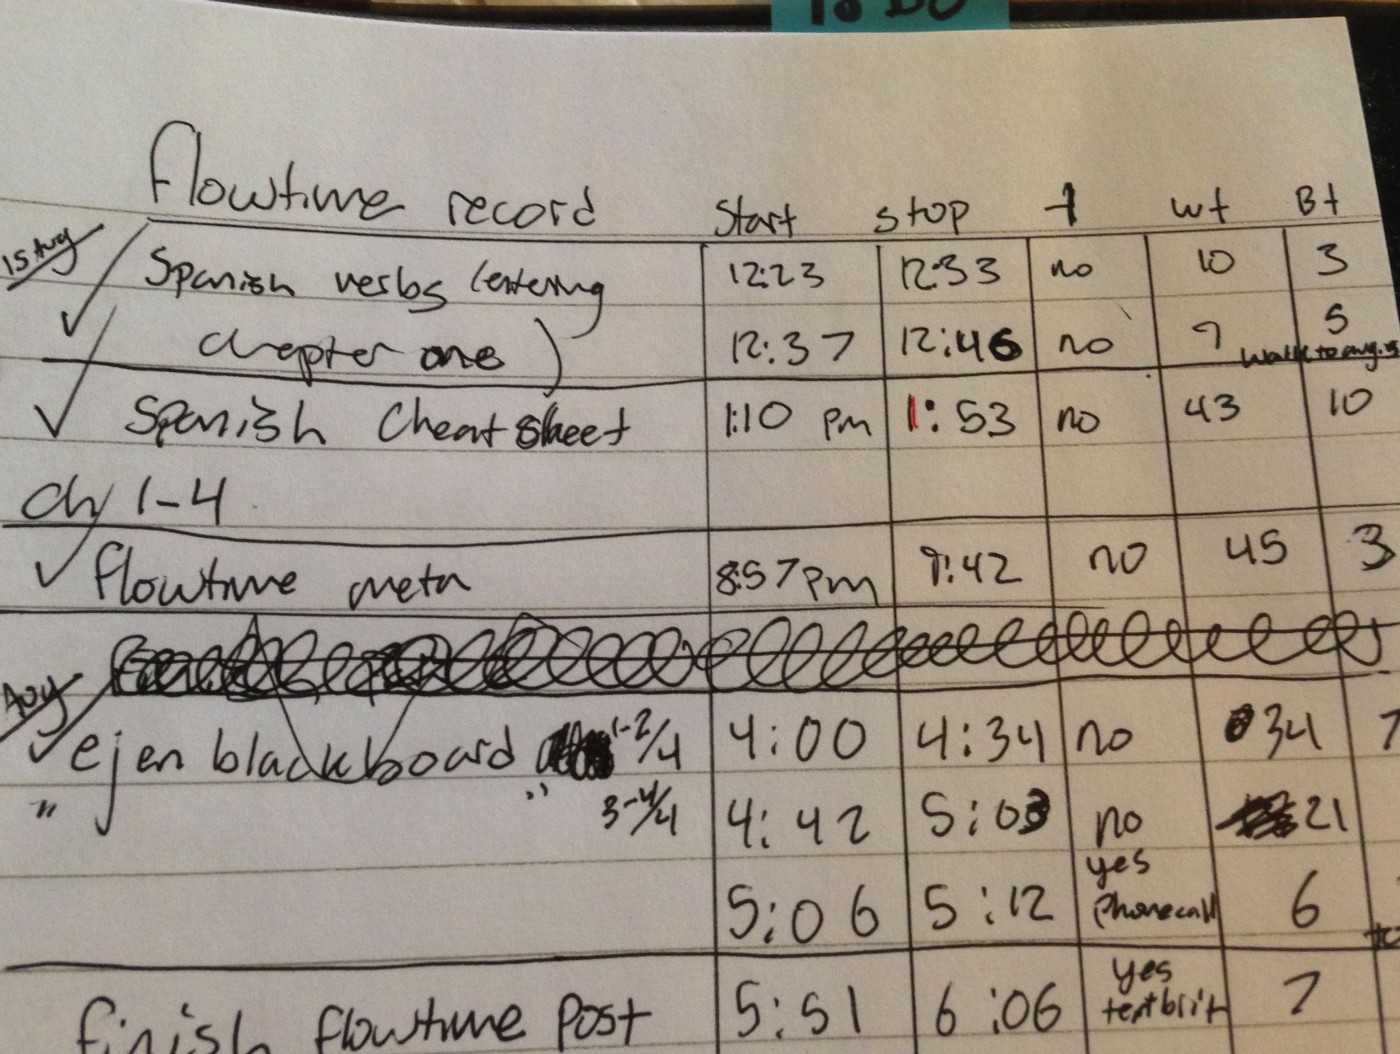 To Do
flowtime record start stop wt Bt
15 Aug
Spanish verbs (entering 12:23 12:33 no 10 3
chapter one) 12:37 12:46 no 9 5
walk to
Spanish Cheat Sheet 1:10 pm 1:53 no 43 10
ch 1-4
flowtime meta 8:57 pm 9:42 no 45 3
Aug
ejen blackboard 1-2/4 4:00 4:34 no 34 7
" " 3-4/4 4:42 5:03 no 21
5:06 5:12 yes phonecall 6
finish flowtime post 5:51 6:06 yes 7